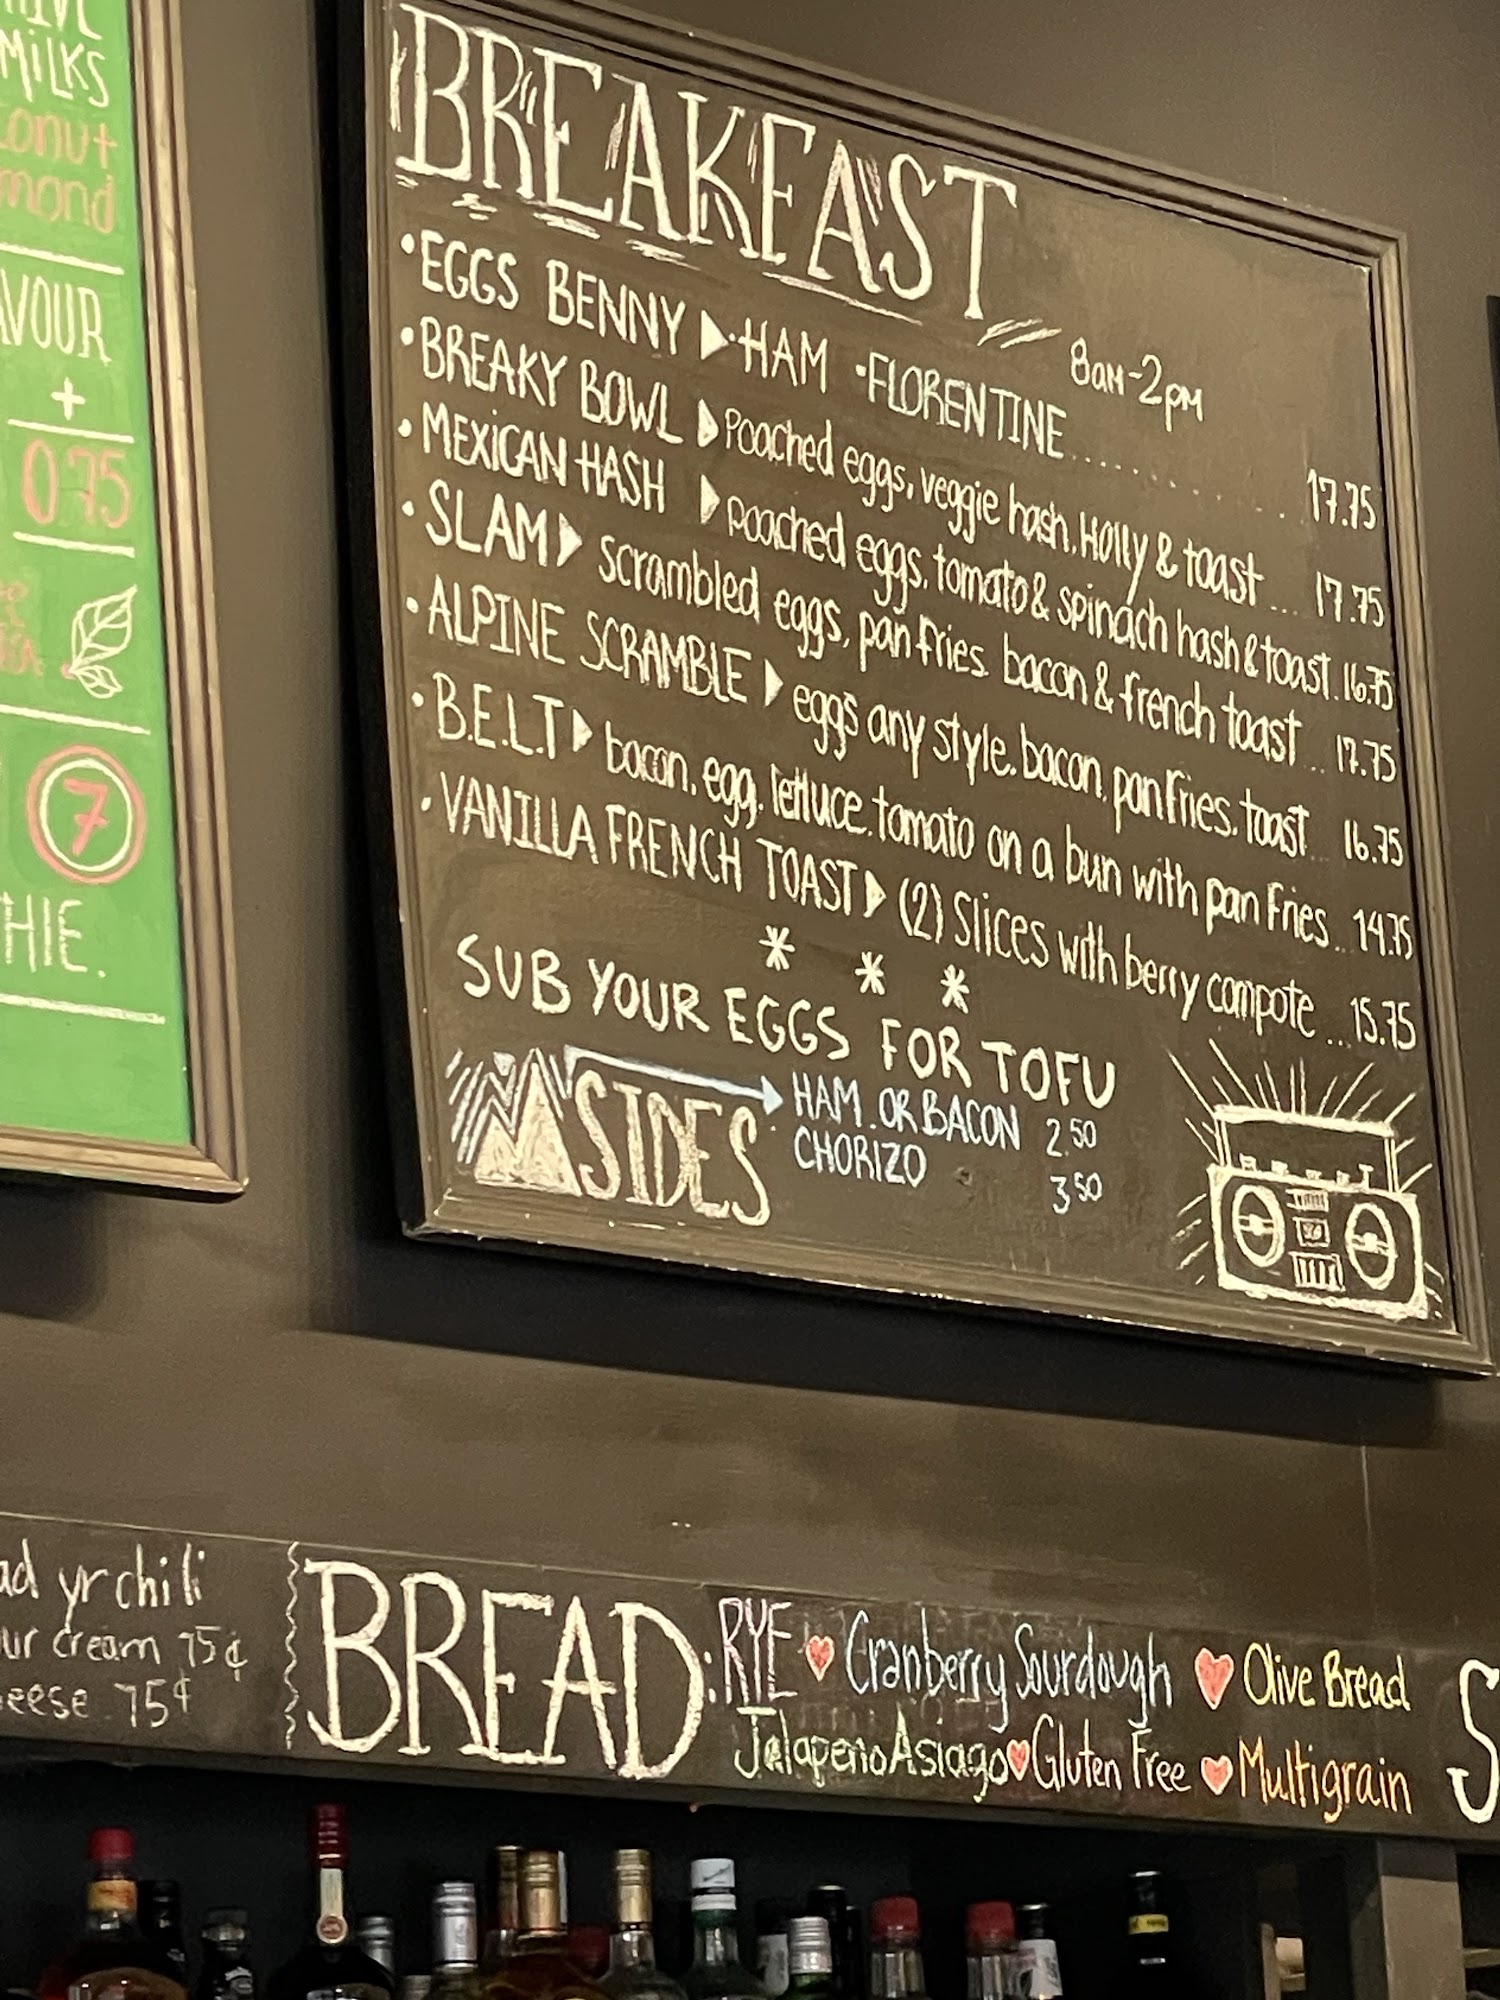 MILKS
VOUR
+
0.75
7
HIE.
BREAKFAST
8am-2pm
• EGGS BENNY ▶ • HAM • FLORENTINE .......... 17.75
• BREAKY BOWL ▶ Poached eggs, veggie hash, Holly & toast ... 17.75
• MEXICAN HASH ▶ poached eggs, tomato & spinach hash & toast . 16.75
• SLAM ▶ scrambled eggs, pan fries, bacon & french toast ... 17.75
• ALPINE SCRAMBLE ▶ eggs any style, bacon, pan fries, toast .. 16.75
• B.E.L.T ▶ bacon, egg, lettuce, tomato on a bun with pan fries .. 14.75
• VANILLA FRENCH TOAST ▶ (2) Slices with berry compote ... 15.75
* * *
SUB YOUR EGGS FOR TOFU
SIDES
HAM OR BACON 2.50
CHORIZO 3.50
yr chili
cream 75¢
75¢
BREAD: RYE ♥ Cranberry Sourdough ♥ Olive Bread
Jalapeno Asiago ♥ Gluten Free ♥ Multigrain
S